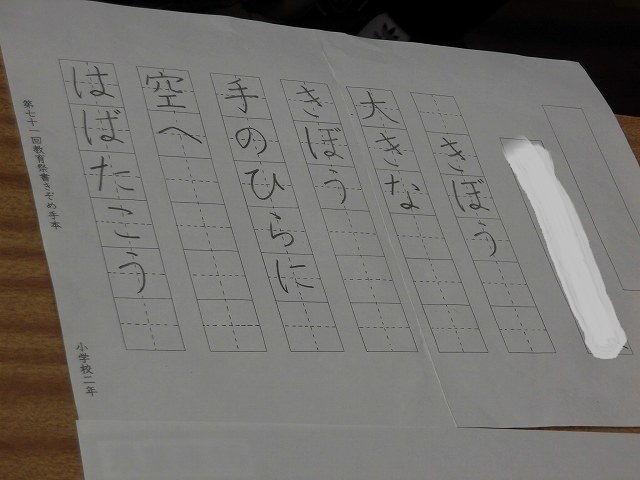 きぼう
大きな
きぼう
手のひらに
空へ
はばたこう
第七十一回教育祭書きぞめ手本
小学校二年